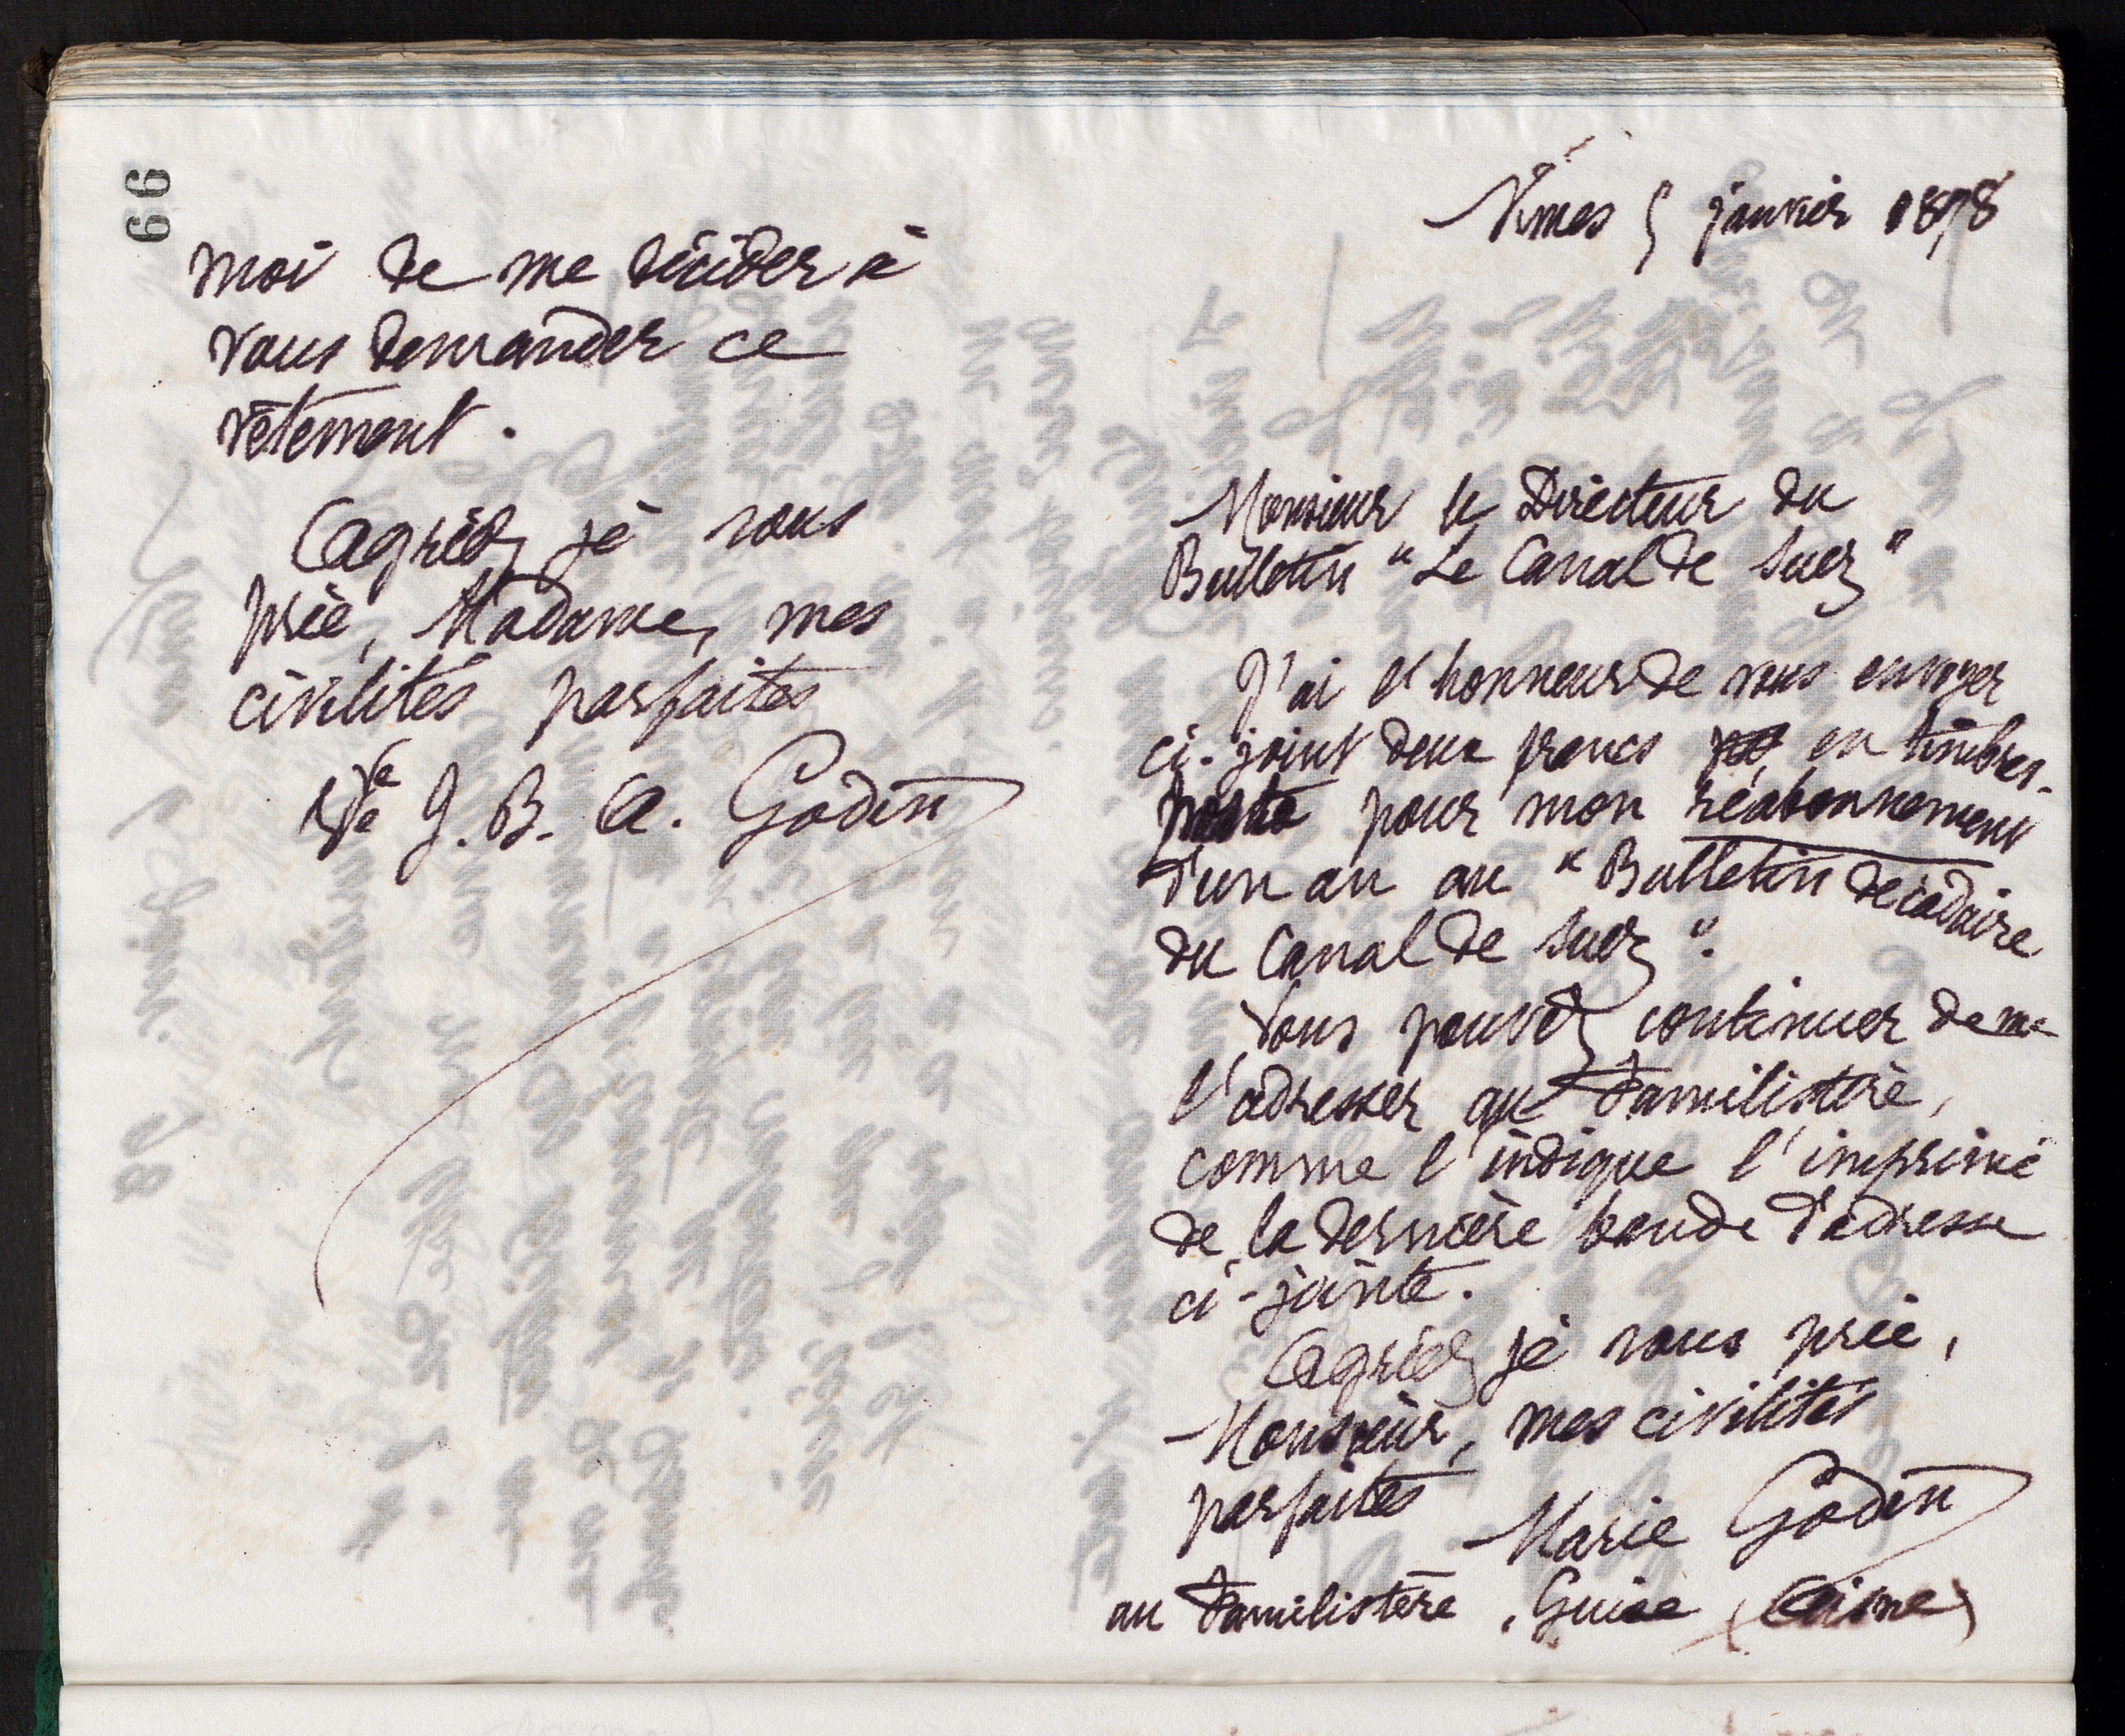 99
moi de me décider à
vous demander ce
vêtement.
Agréez je vous
prie, Madame, mes
civilités parfaites
Vve J. B. A. Godin
Nîmes 5 janvier 1898
Monsieur le Directeur du
Bulletin "Le Canal de Suez"
J'ai l'honneur de vous envoyer
ci-joint deux francs en timbres-
poste pour mon réabonnement
d'un an au "Bulletin décadaire
du Canal de Suez".
Vous pouvez continuer de me
l'adresser au Familistère,
comme l'indique l'imprimé
de la dernière bande d'adresse
ci-jointe.
Agréez je vous prie,
Monsieur, mes civilités
parfaites
Marie Godin
au Familistère, Guise (Aisne)